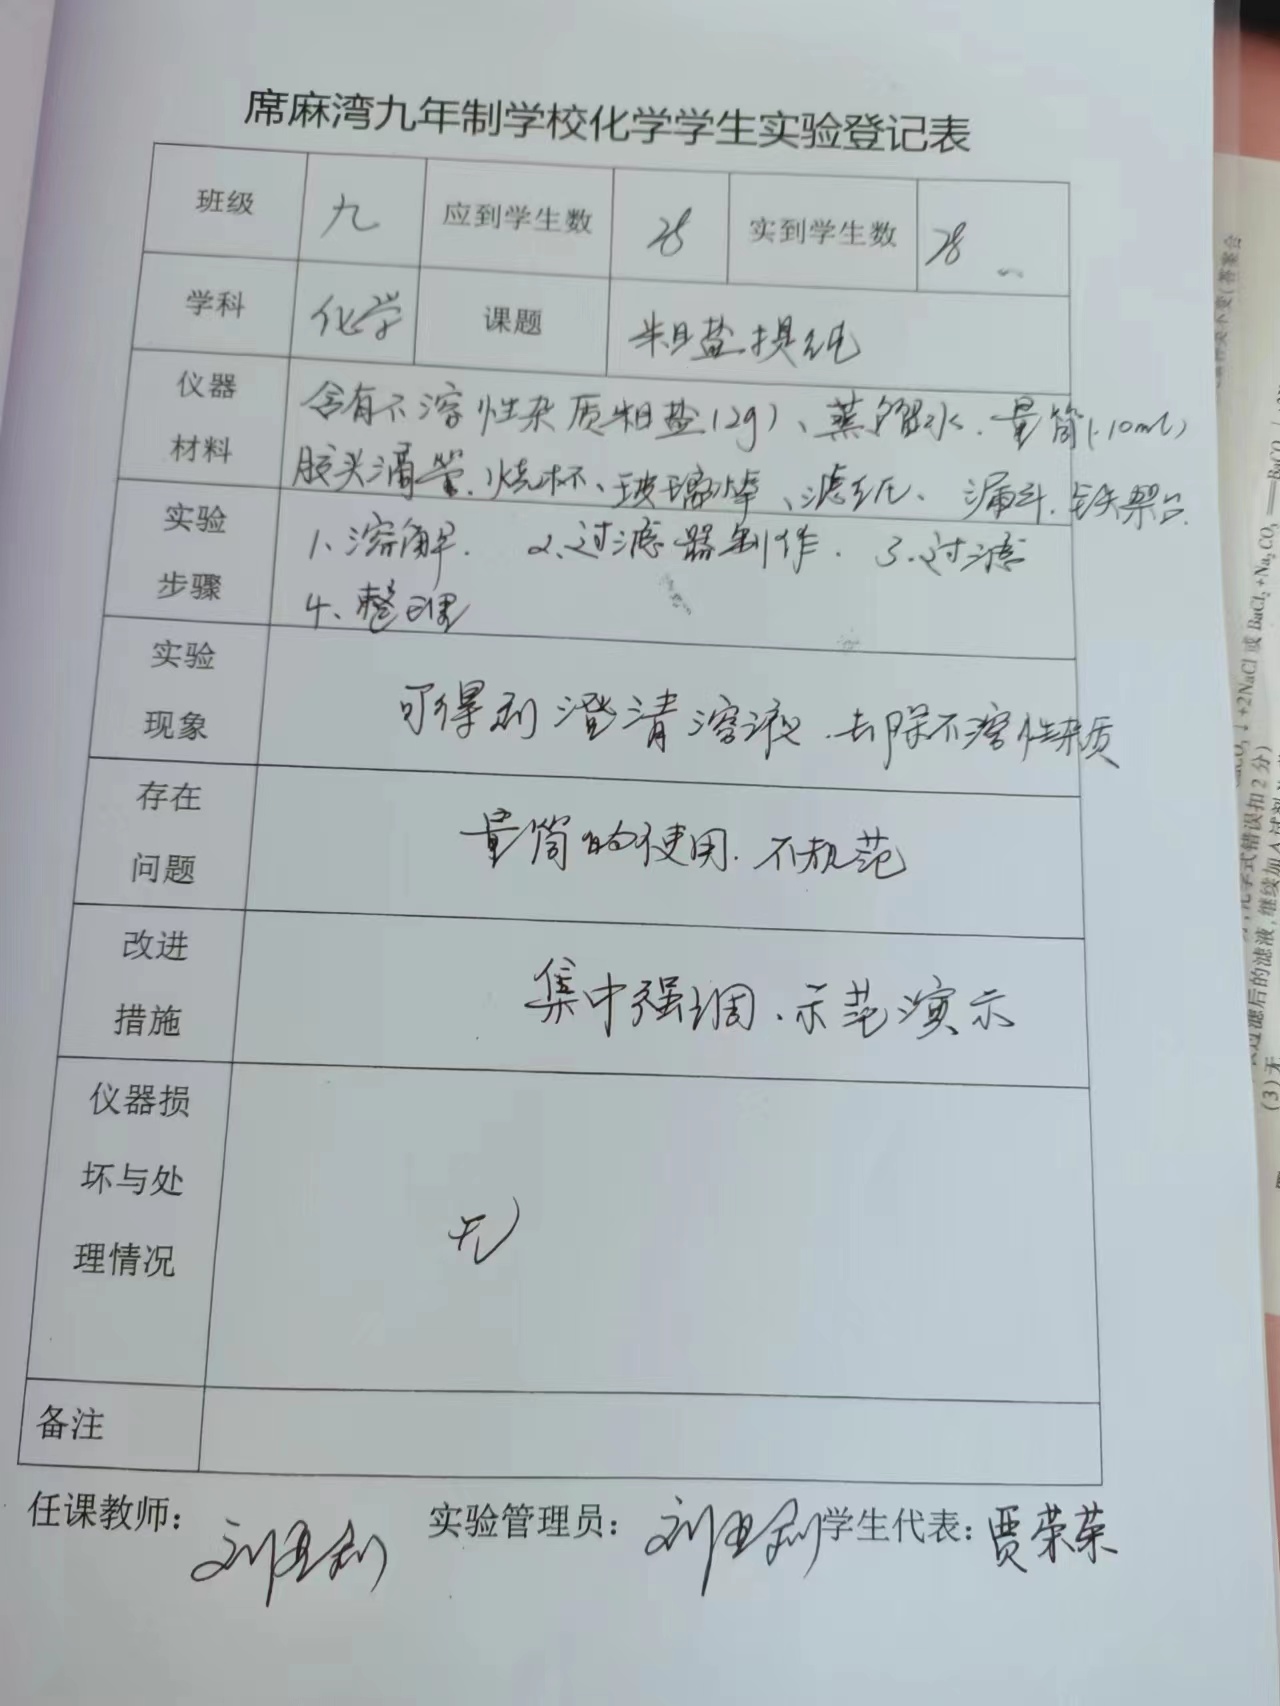 席麻湾九年制学校化学学生实验登记表
班级 九 应到学生数 28 实到学生数 28
学科 化学 课题 粗盐提纯
仪器 含有不溶性杂质粗盐(2g)、蒸馏水、量筒(10ml)
材料 胶头滴管、烧杯、玻璃棒、滤纸、漏斗、铁架台
实验 1、溶解. 2、过滤器制作. 3、过滤
步骤 4、整理
实验
现象 可得到澄清溶液、去除不溶性杂质
存在
问题 量筒的使用、不规范
改进
措施 集中强调、示范演示
仪器损
坏与处
理情况 无
备注
任课教师: 实验管理员: 学生代表:贾荣荣
↓+2NaCl 或 BaCl₂+Na₂CO₃ ══ BaCO₃
化学式错误扣2分)
过滤后的滤液,继续加入过
(3)无